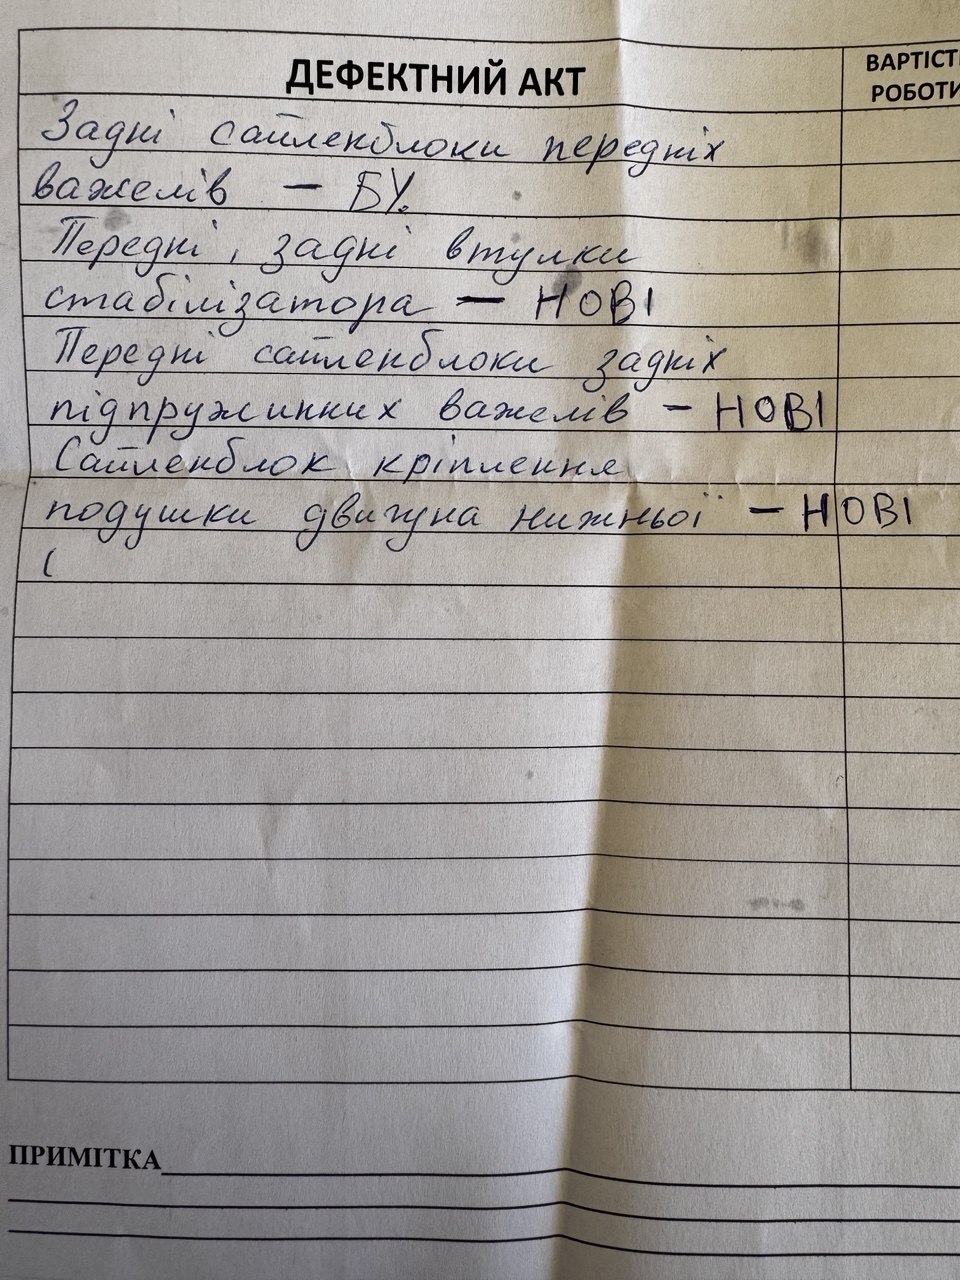 ДЕФЕКТНИЙ АКТ
ВАРТІСТ
РОБОТИ
Задні сайленблоки передніх
важелів — БУ.
Передні, задні втулки
стабілізатора — НОВІ
Передні сайленблоки задніх
підпружинних важелів — НОВІ
Сайленблок кріплення
подушки двигуна нижньої — НОВІ
(
ПРИМІТКА